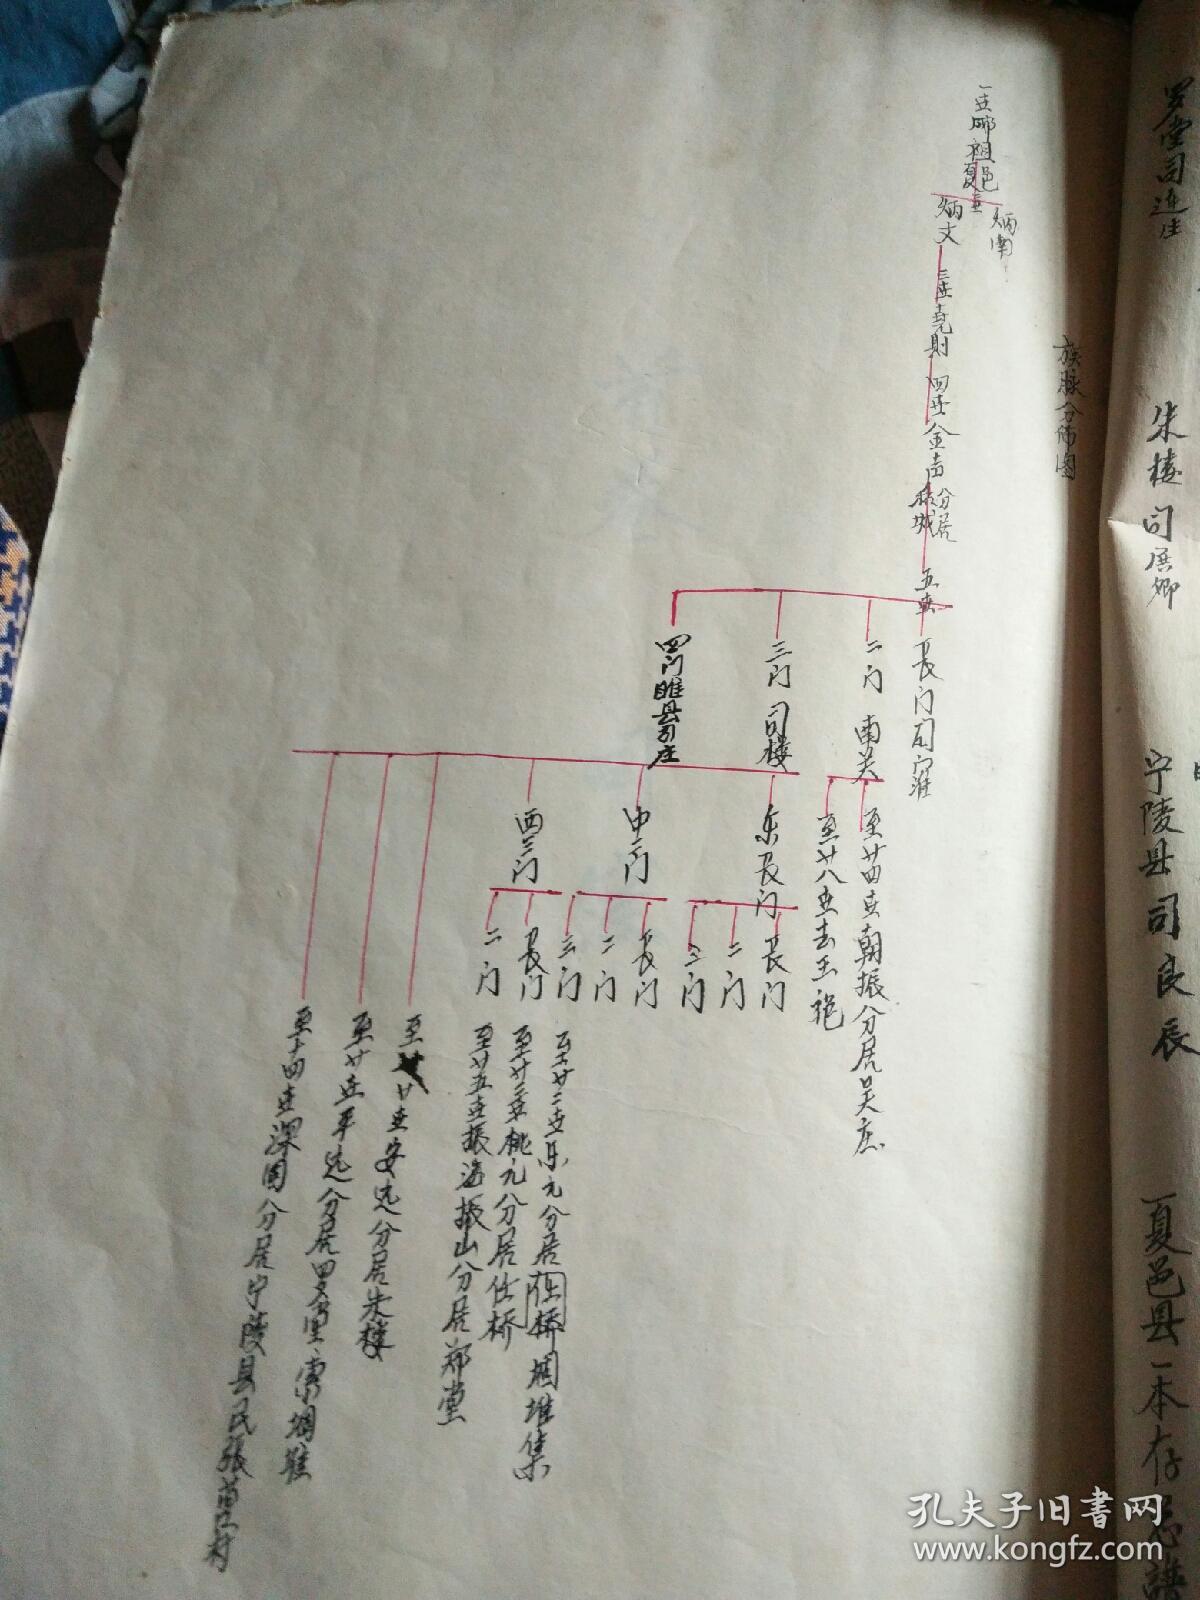 罗堂司连生
朱楼司居卿
宁陵县司良辰
夏邑县一本存
族脉分佈图
一世
祖
夏邑
炳南
炳文
三世克則
四世金声
分居
五世
长门
二门南关
三门司楼
四门睢县司庄
至廿四世朝振分居吴庄
至廿八世去王
东长门
中二门
西三门
长门
二门
三门
长门
二门
三门
长门
二门
至廿二世乐元分居任桥堌堆集
至廿三世桃元分居任桥
至廿五世振海振山分居郑堂
至廿世安远分居朱楼
至廿世平远分居罗李里窜堌堆
至十四世深固分居宁陵县民張黄村
孔夫子旧书网
www.kongfz.com